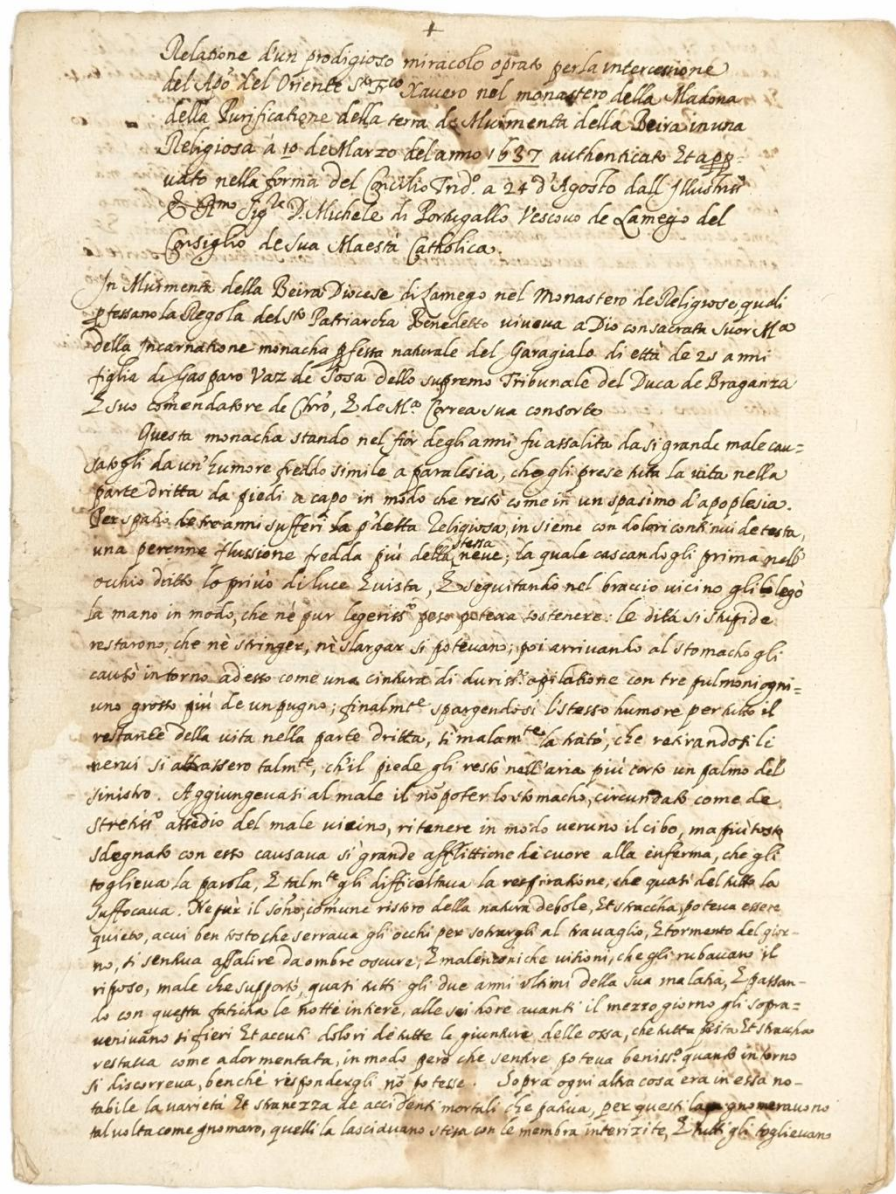 +
Relatione d'un prodigioso miracolo oprato per la intercessione
del Apo del Oriente Sto Frco Xavero nel monastero della Madona
della Purificatione della terra de Muimenta della Beira in una
Religiosa à 10 de Marzo del anno 1637 authenticato Et app-
vato nella forma del Concilio Trid.o a 24 d'Agosto dall Illustriss
& Rmo Sigre D. Michele di Portugallo Vescovo de Lamego del
Consiglio de sua Maestà Catholica.
In Muimenta della Beira Diocese di Lamego nel Monastero de Religiose, quali
pfessano la Regola del Sto Patriarcha Benedetto viveva a Dio consacrata Suor Ma
della Incarnatione monacha pfessa naturale del Garagialo di età de 25 anni
figlia di Gasparo Vaz de Sosa dello supremo Tribunale del Duca de Braganza
E suo comendatore de Chro, E de Ma Correa sua consorte
Questa monacha stando nel fior degli anni fu assalita da si grande male cau=
satogli da un'humore freddo simile a paralesia, che gli prese tutta la vita nella
parte dritta da piedi a capo in modo che restò come in un spasimo d'apoplesia.
Per spatio de tre anni sufferì la pdetta Religiosa, insieme con dolori continui de testa,
una perenne flussione fredda più della stessa neve; la quale cascandogli prima nell'
occhio dritto lo privò di luce E vista, E seguitando nel braccio vicino gli legò
la mano in modo, che nè pur legeriss.o peso poteva sostenere: le dita si stupide
restarono, che nè stringer, nè slargar si potevano; poi arrivando al stomacho gli
causò intorno ad esso come una cintura di duriss.a opilatione con tre pulmoni ogni=
uno grosso più de un pugno; finalmte spargendosi l'istesso humore per tutto il
restante della vita nella parte dritta, si malamte la trattò, che retirandosi li
nervi si attrassero talmte, ch'il piede gli restò nell'aria più corto un palmo del
sinistro. Aggiungevasi al male il nō poter lo stomacho, circundato come de
stretiss.o assedio del male vicino, ritenere in modo veruno il cibo, ma più tosto
sdegnato con esto causava sì grande afflittione di cuore alla enferma, che gli
toglieva la parola, E talmte gli difficoltava la respiratione, che quasi del tutto la
suffocava. Ne pur il sōno, comune ristoro della natura debole, Et stracha, poteva essere
quieto, a cui ben tosto che serrava gli occhi per sotrargli al travaglio, E tormento del gior-
no, si sentiva assalire da ombre oscure, E malenconiche visioni, che gli rubavano il
riposo, male che supportò quasi tutti gli due anni ultimi della sua malatia, E passan-
do con questa faticha le notte intiere, alle sei hore avanti il mezzo giorno gli sopra=
venivano sì fieri Et accuti dolori de tutte le giunture delle ossa, che tutta pista Et stracha
restava come adormentata, in modo però che sentire poteva beniss.o quanto intorno
si discorreva, benchè respondergli nō potesse. Sopra ogni altra cosa era in essa no-
tabile la varietà Et stranezza de accidenti mortali che pativa, per questi la gnomeravono
tal volta come gnomaro, quelli la lasciavano stesa con le membra interizite, E tutti gli toglievano